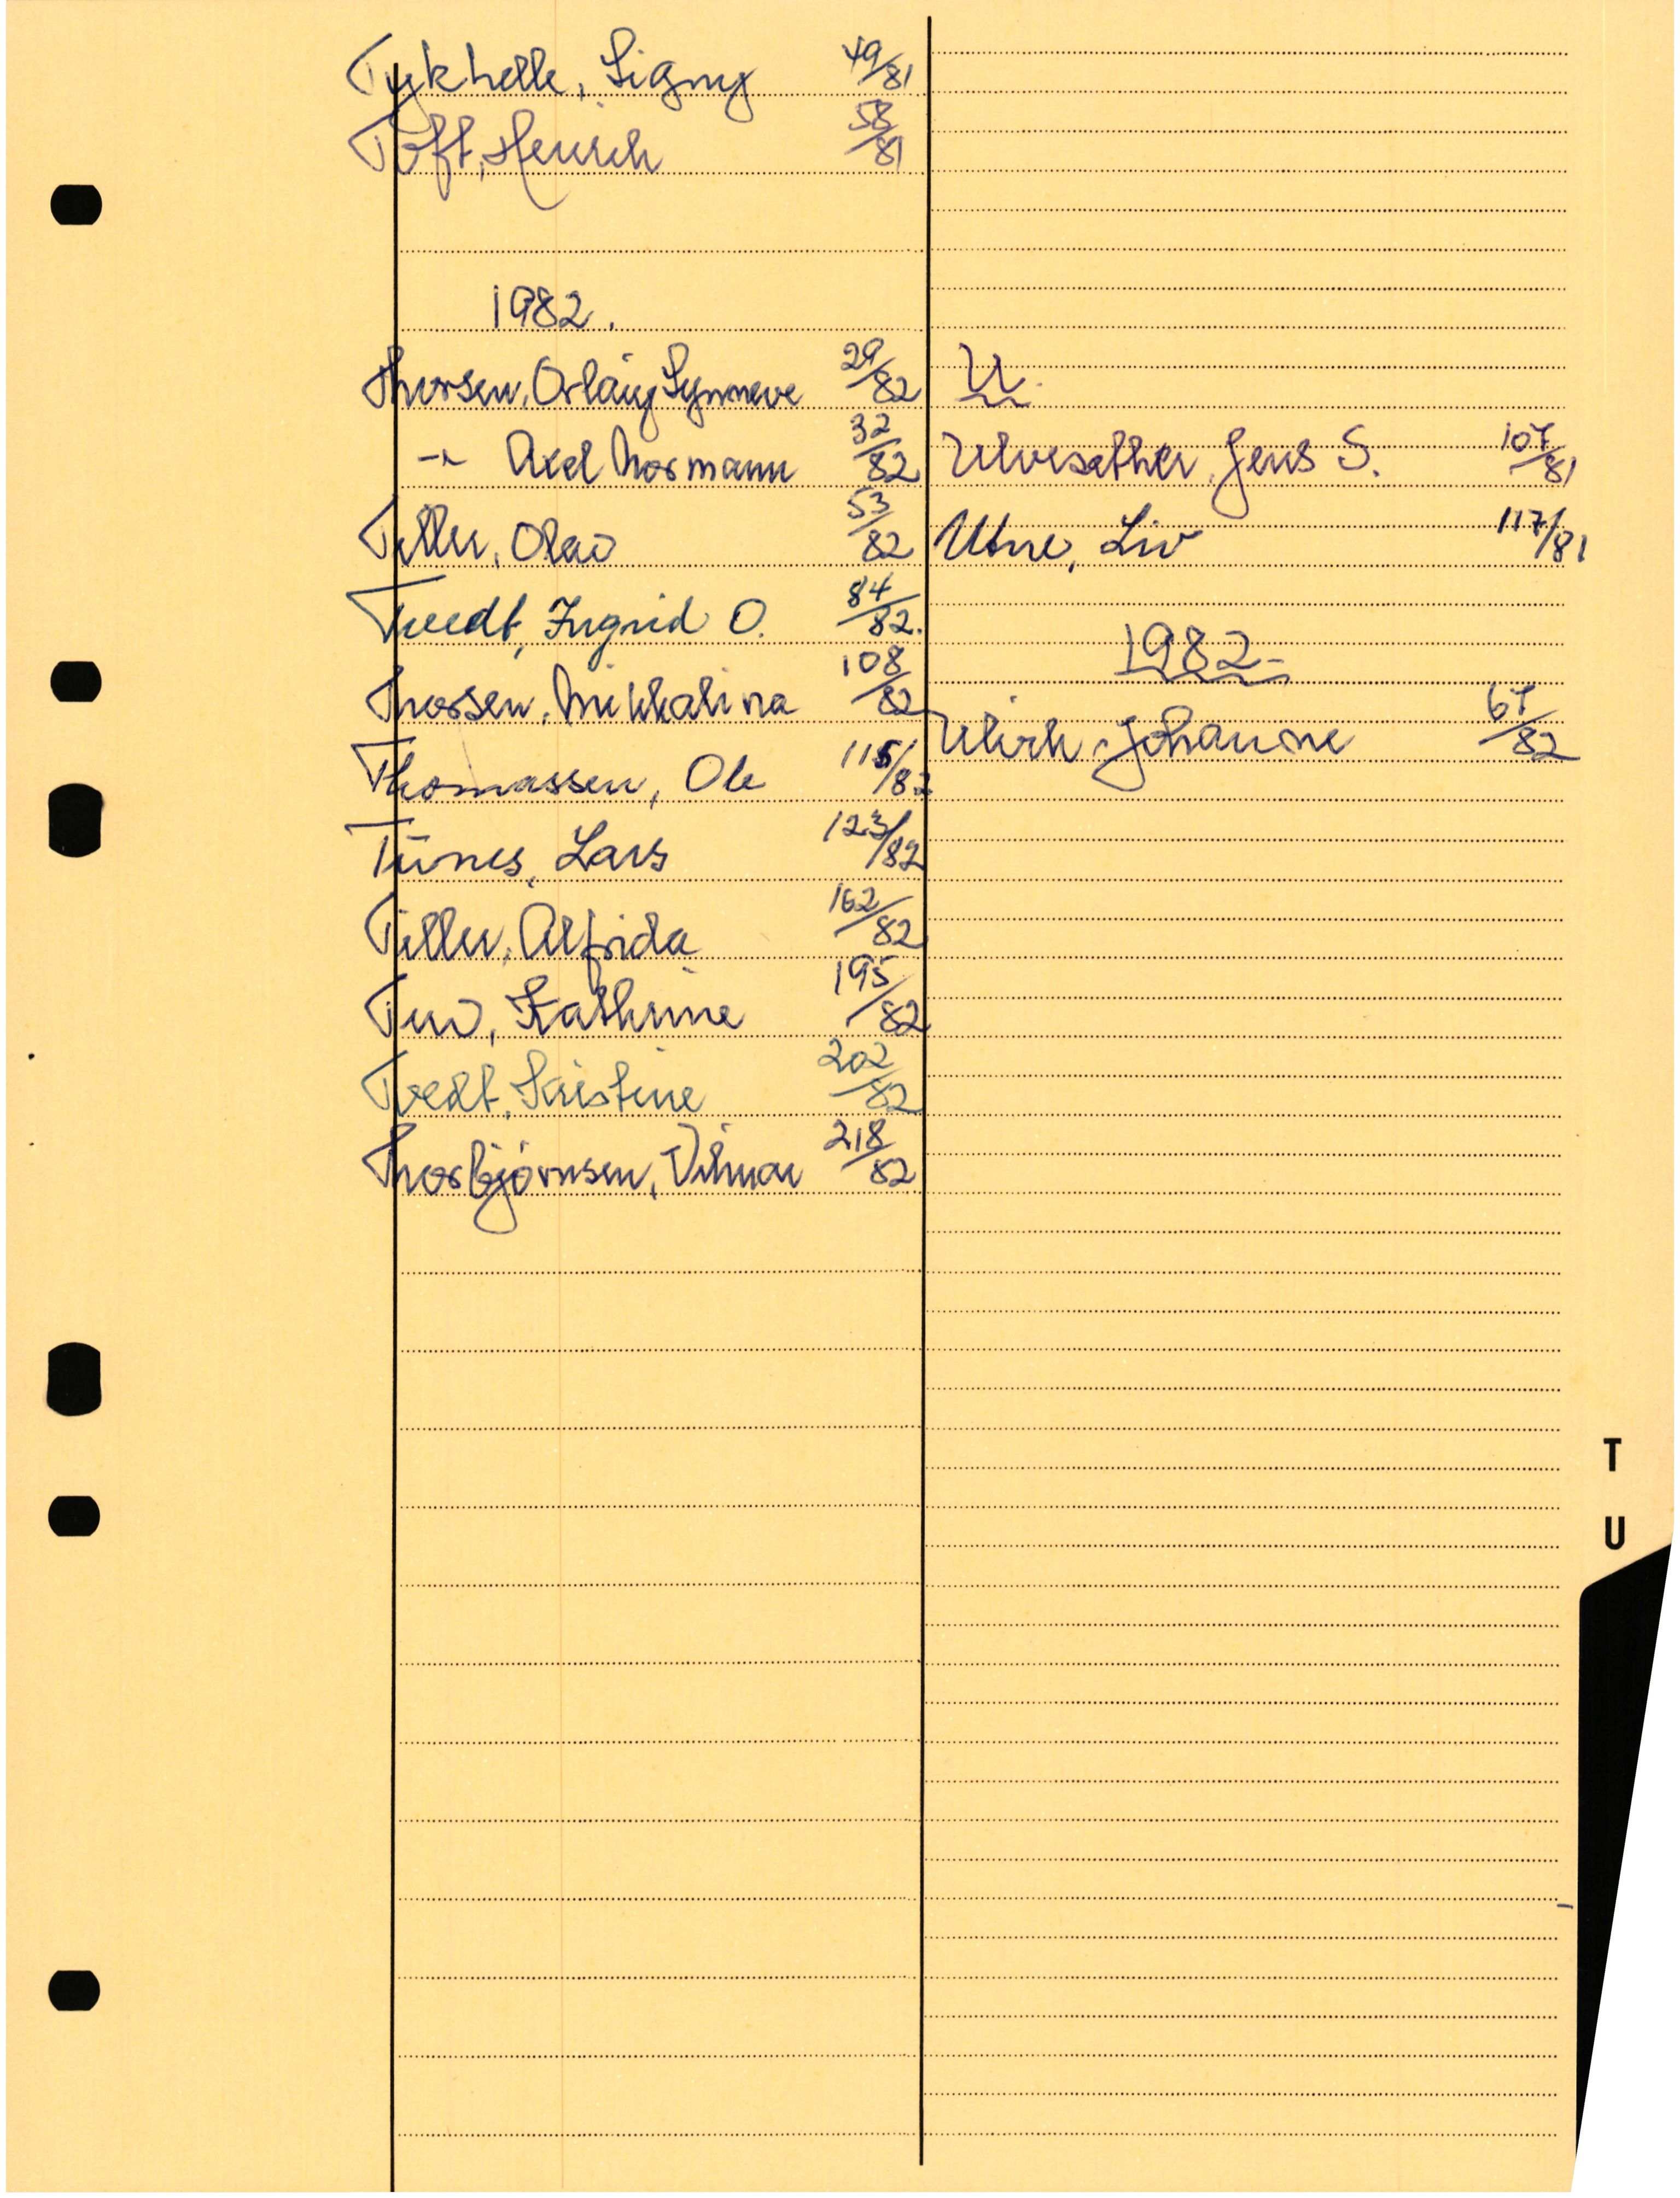 Tykhelle, Signy 49/81
Toft, Henrich 58/81
1982.
Thorsen, Orlaug Synneve 29/82
-"- Axel Normann 32/82
Tiller, Olav 53/82
Tvedt, Ingrid O. 84/82.
Thorsen, Mikkalina 108/82
Thomassen, Ole 115/82
Tunes, Lars 123/82
Tiller, Alfrida 162/82
Kathrine 195/82
Tvedt, Kristine 202/82
Thorbjørnsen, Vilmar 218/82
U.
Ulvesæther, Jens S. 107/81
Utne, Liv 117/81
1982-
Ulrik, Johanne 67/82
T
U